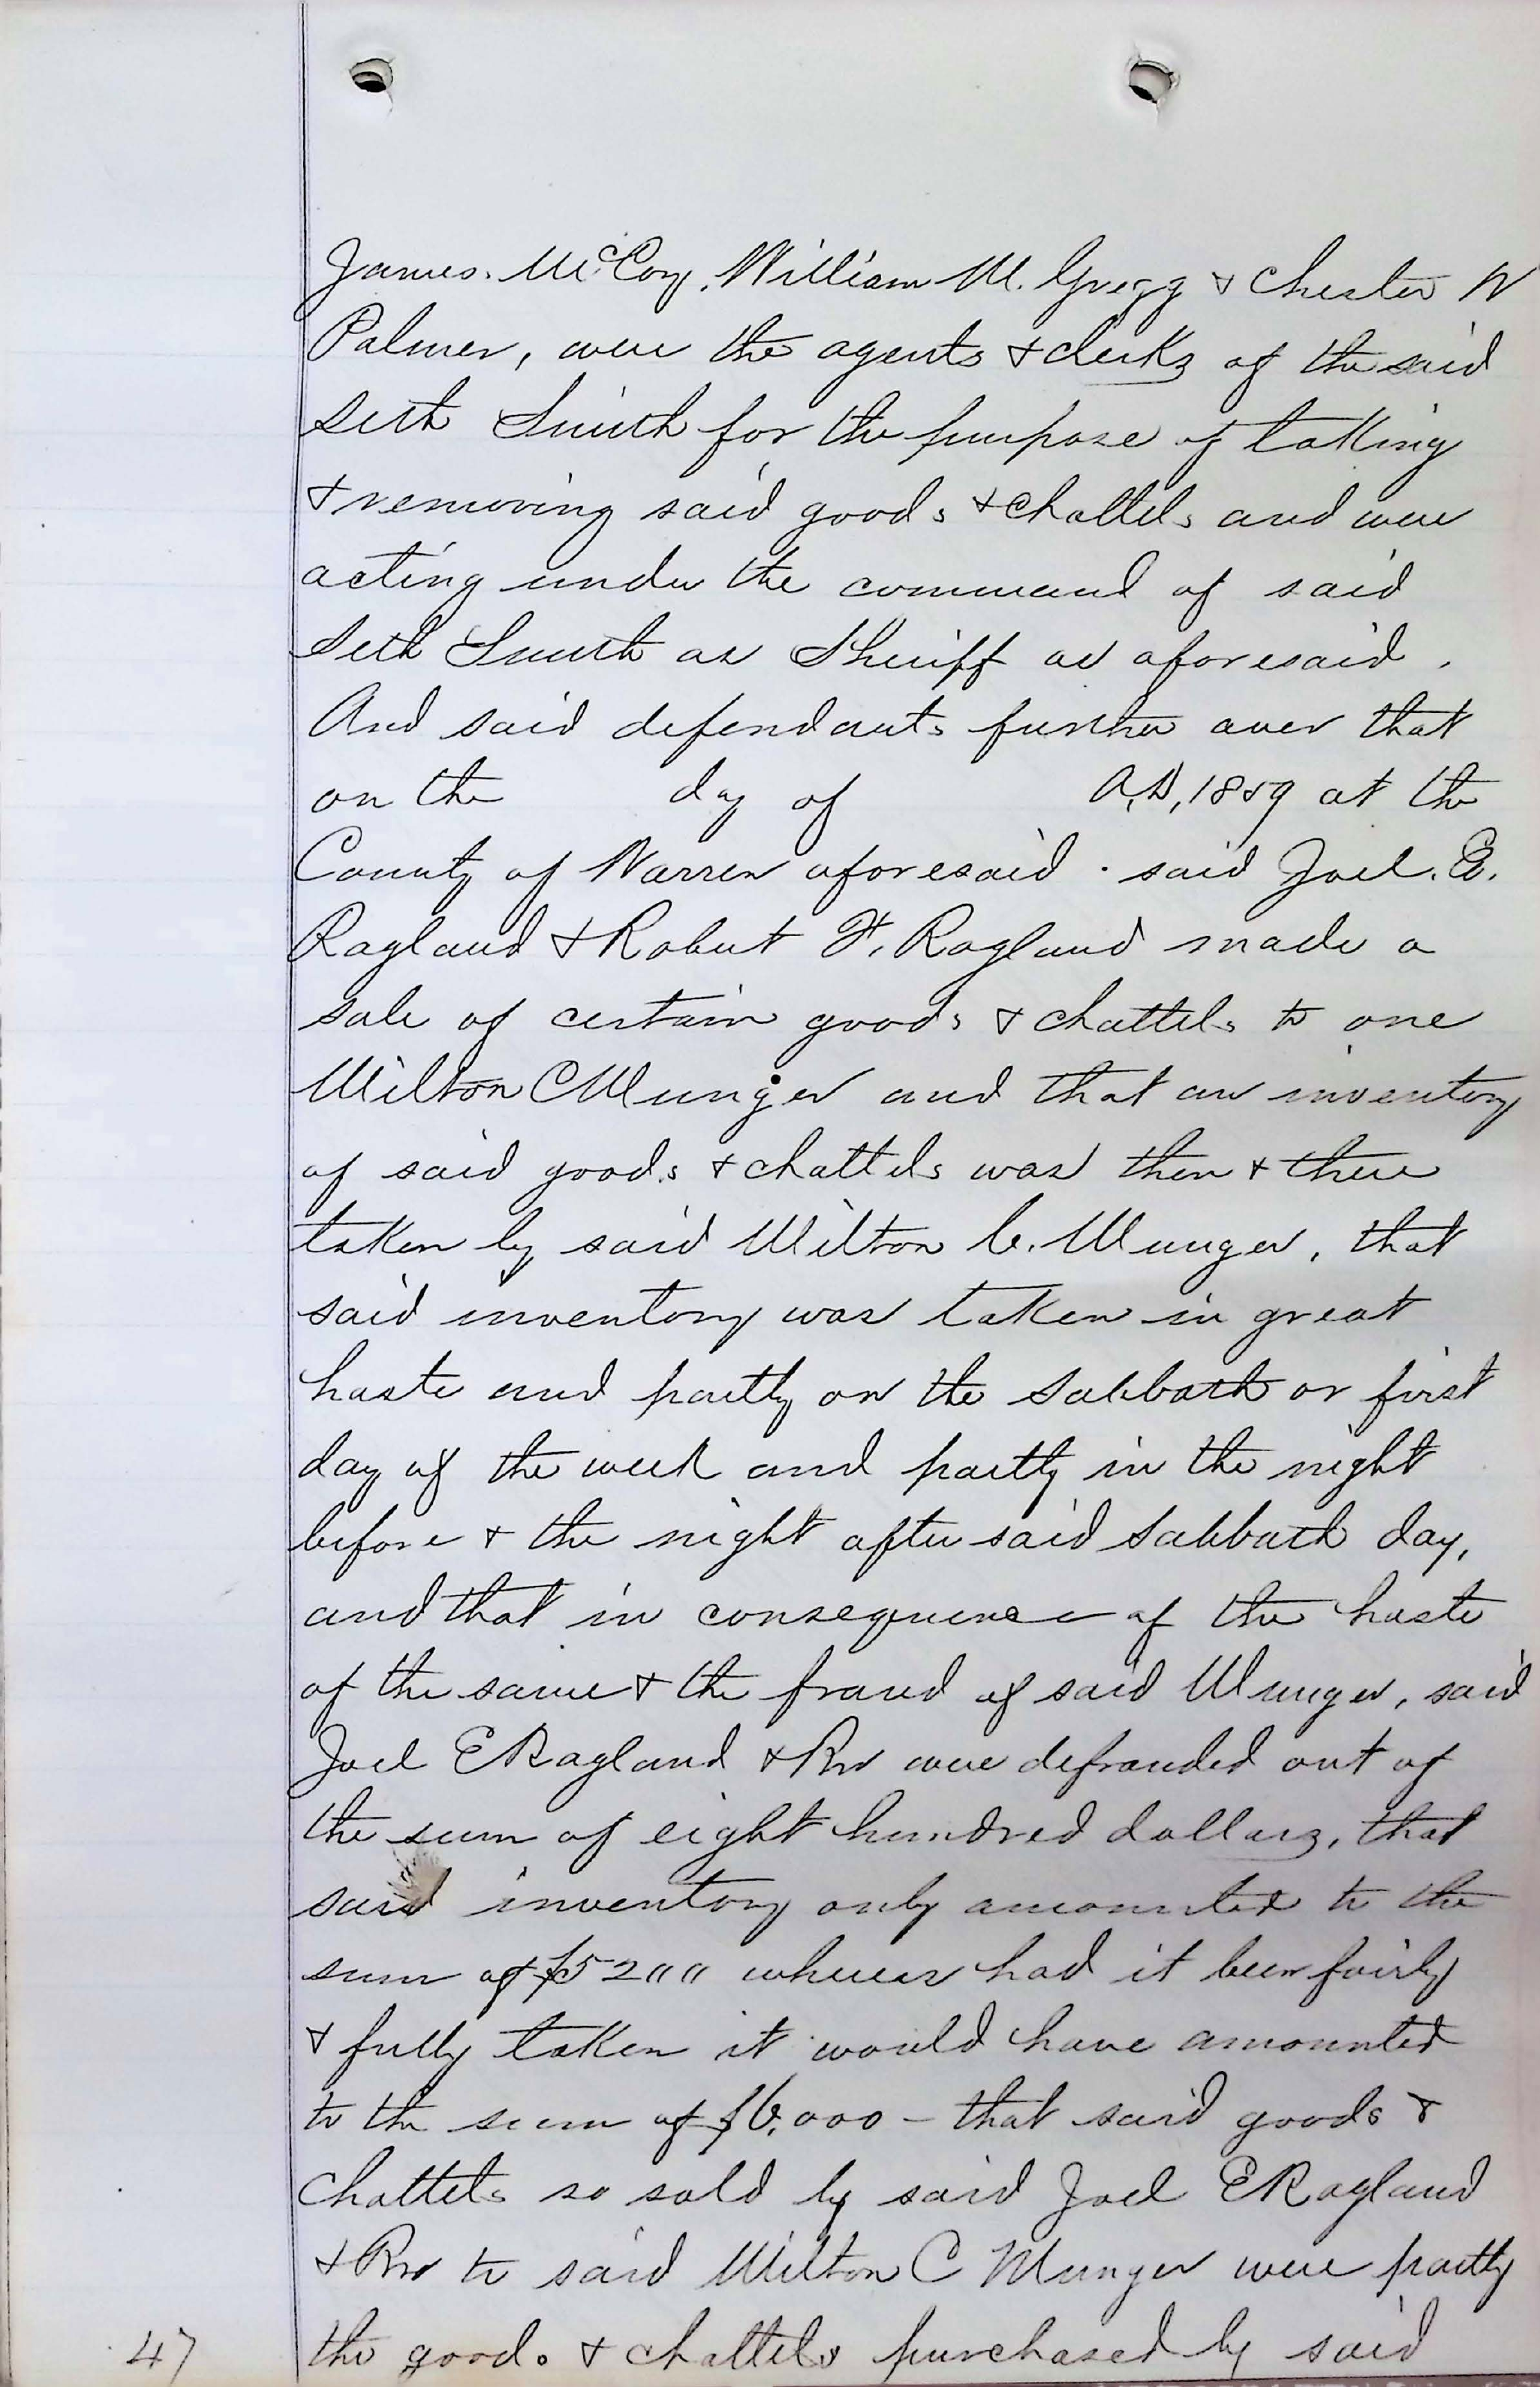 James. McCoy, William M. Gregg & Chester W
Palmer, were the agents & clerks of the said
Seth Smith for the purpose of taking
& removing said goods & chattels and were
acting under the command of said
Seth Smith as Sheriff as aforesaid.
And said defendants further aver that
on the day of A.D. 1859 at the
County of Warren aforesaid. said Joel. E.
Ragland & Robert F. Ragland made a
sale of certain goods & chattels to one
Milton C Munger and that an inventory
of said goods & chattels was then & there
taken by said Milton C. Munger, that
said inventory was taken in great
haste and partly on the Sabbath or first
day of the week and partly in the night
before & the night after said Sabbath day,
and that in consequence of the haste
of the same & the fraud of said Munger, said
Joel E Ragland & Bro were defrauded out of
the sum of eight hundred dollars, that
said inventory only amounted to the
sum of $5200 whereas had it been fairly
& fully taken it would have amounted
to the sum of $6,000 - that said goods &
chattels so sold by said Joel E Ragland
& Bro to said Milton C Munger were partly
the goods & chattels purchased by said
47